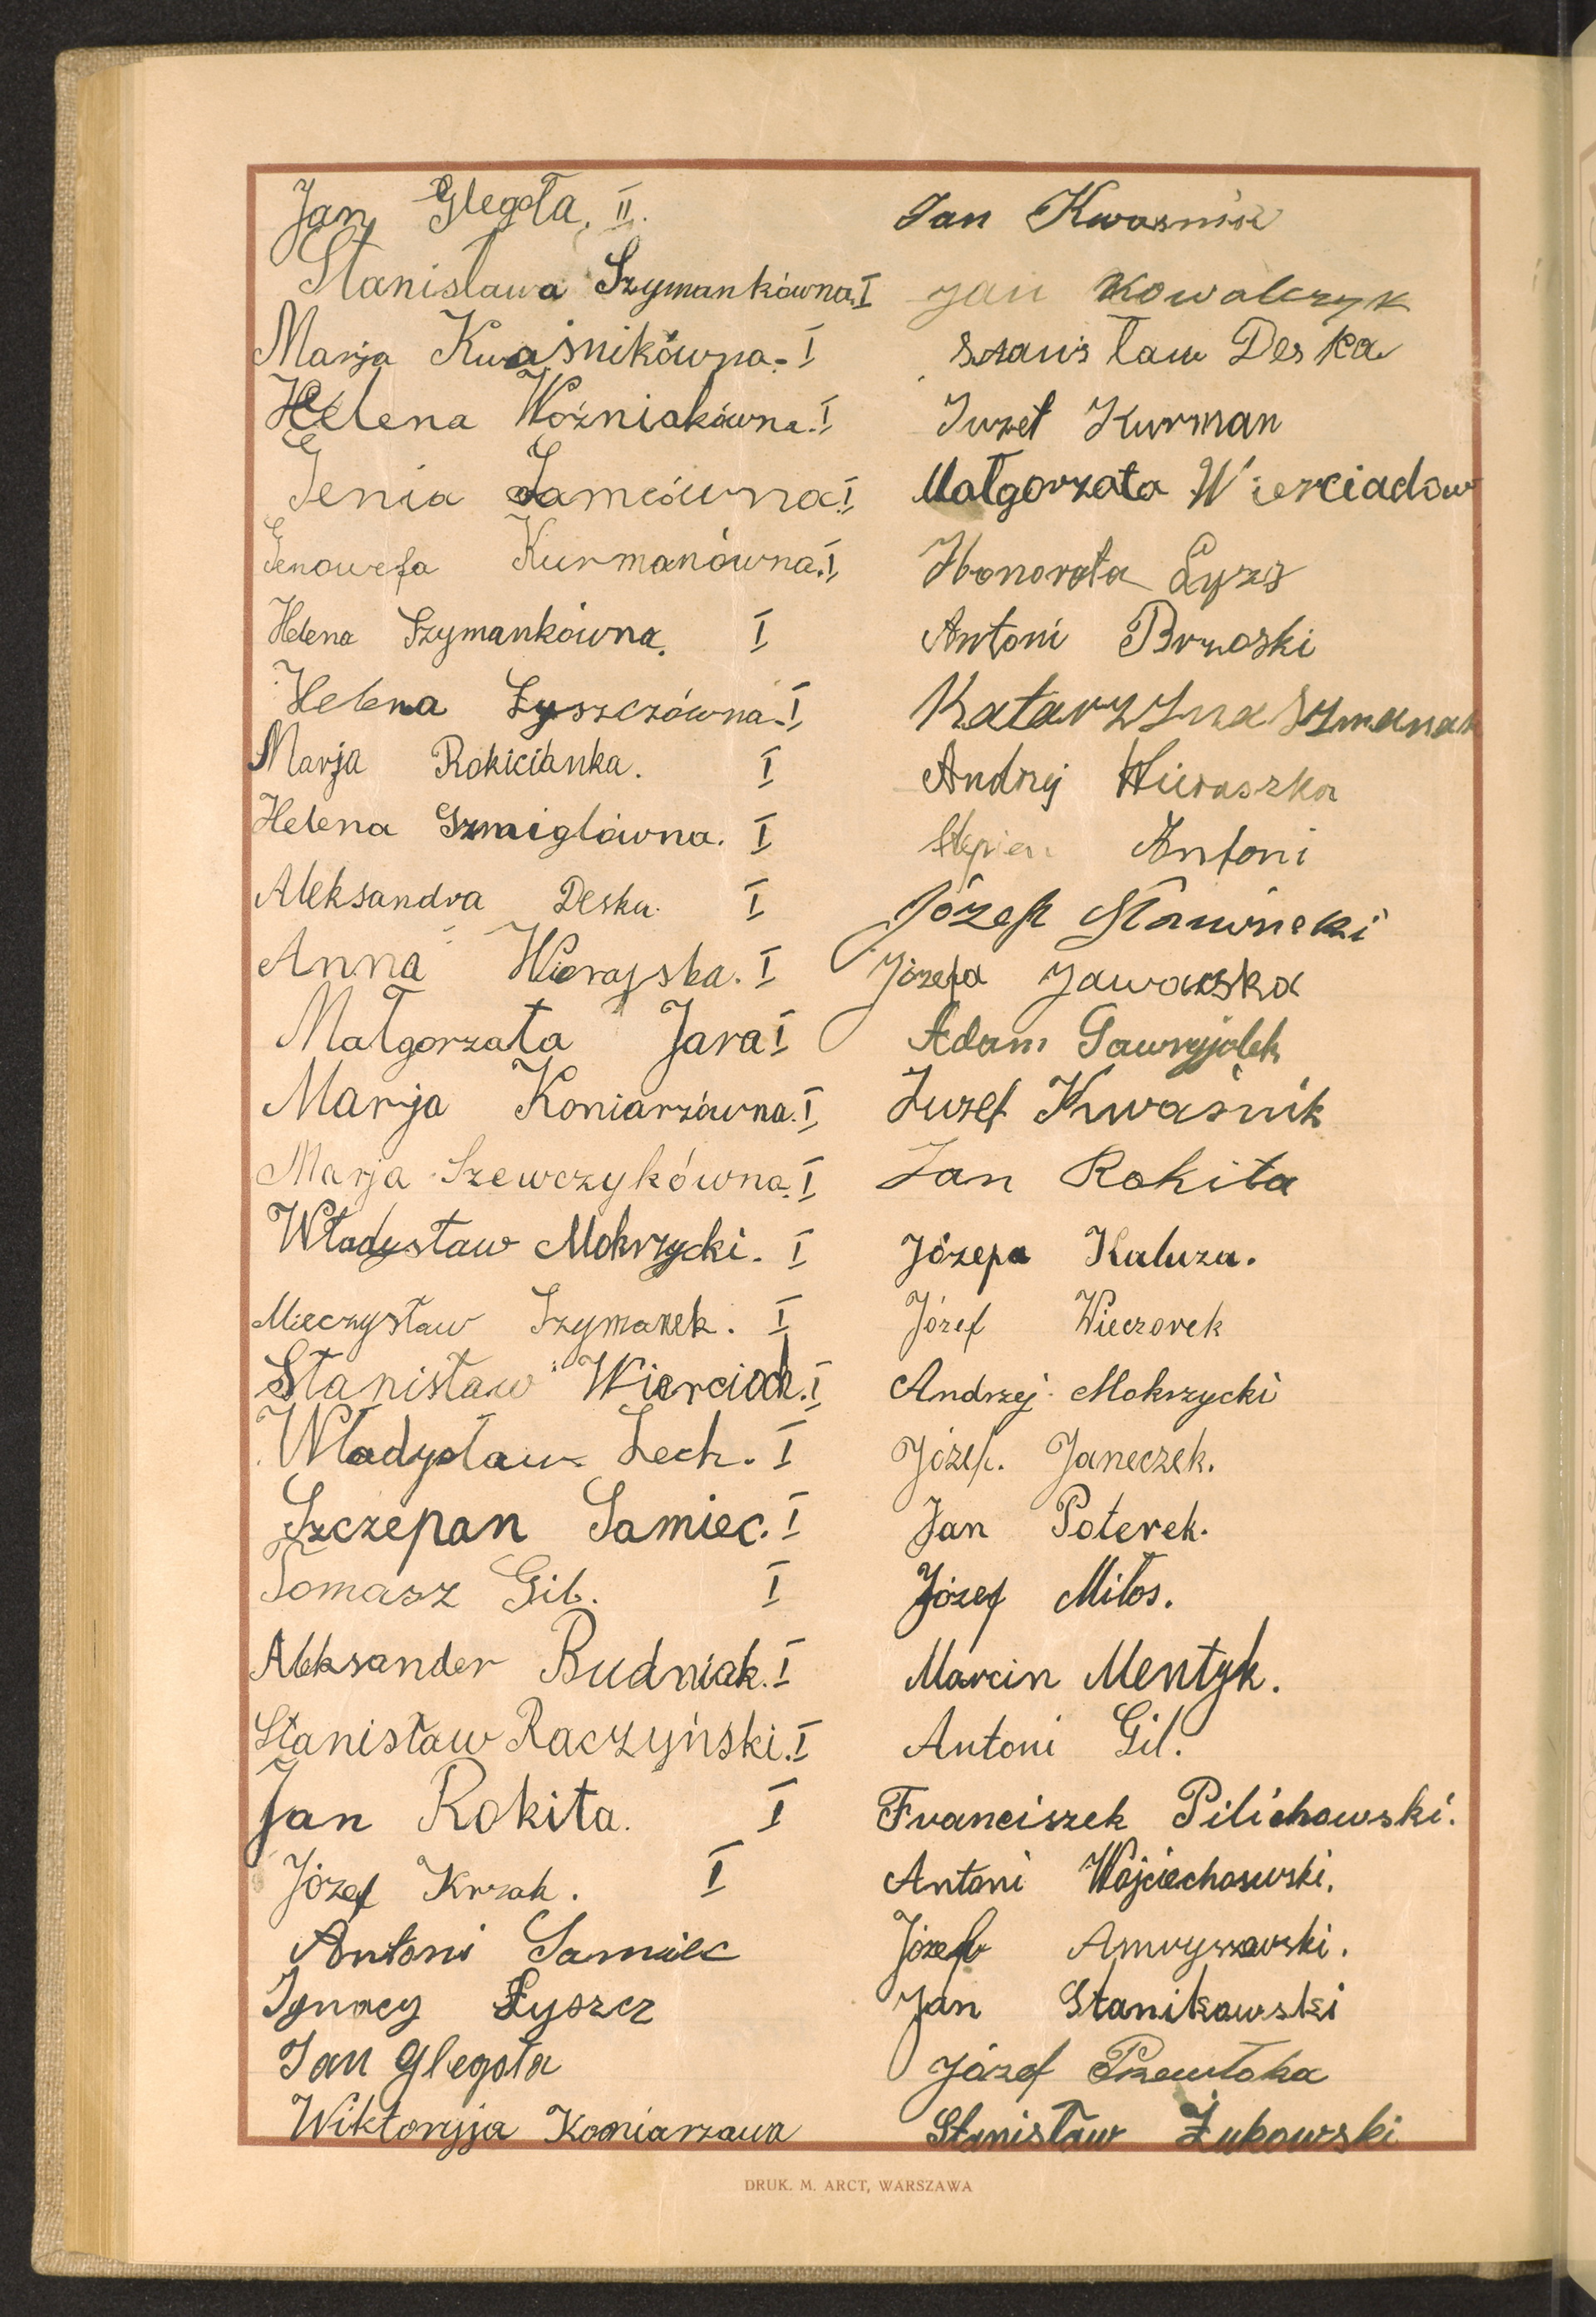 Jan Glegoła. II.
Stanisława Szymankówna. I
Marja Kwaśnikówna. I
Helena Woźniakówna. I
Genia Samcówna. I
Genowefa Kurmanówna. I
Helena Szymankówna. I
Helena Łyszczówna. I
Marja Rokicianka. I
Helena Szmiglówna. I
Aleksandra Deska. I
Anna I
Małgorzata Jara I
Marja Koniarzówna. I
Marja Szewczykówna. I
Władysław Mokrzycki. I
Mieczysław Szymanek. I
Stanisław Wiercioch. I
Władysław Lech. I
Szczepan Samiec. I
Tomasz Gil. I
Aleksander Budniak. I
Stanisław Raczyński. I
Jan Rokita. I
Józef Krzak. I
Antoni Samiec
Ignacy Łyszcz
Jan Glegoła
Wiktoryja Koniarzawa
Jan Kwasnik
Jan Kowalczyk
Deska
Juzef Kurman
Małgorzata
Honorata Łyzs
Antoni Brzoski
Katarzyna
Andrzej
Stepien Antoni
Józef
Józefa Jaworska
Adam Gawryjołek
Juzef Kwaśnik
Jan Rokita
Józepa Kaluza.
Józef Wieczorek
Andrzej Mokrzycki
Józef. Janeczek.
Jan Poterek.
Józef Miłos.
Marcin Mentyk.
Antoni Gil.
Franciszek Pilichowski.
Antoni Wojciechowski.
Józef
Jan Stanikowski
Józef Przewłoka
Stanisław Żukowski
DRUK. M. ARCT, WARSZAWA